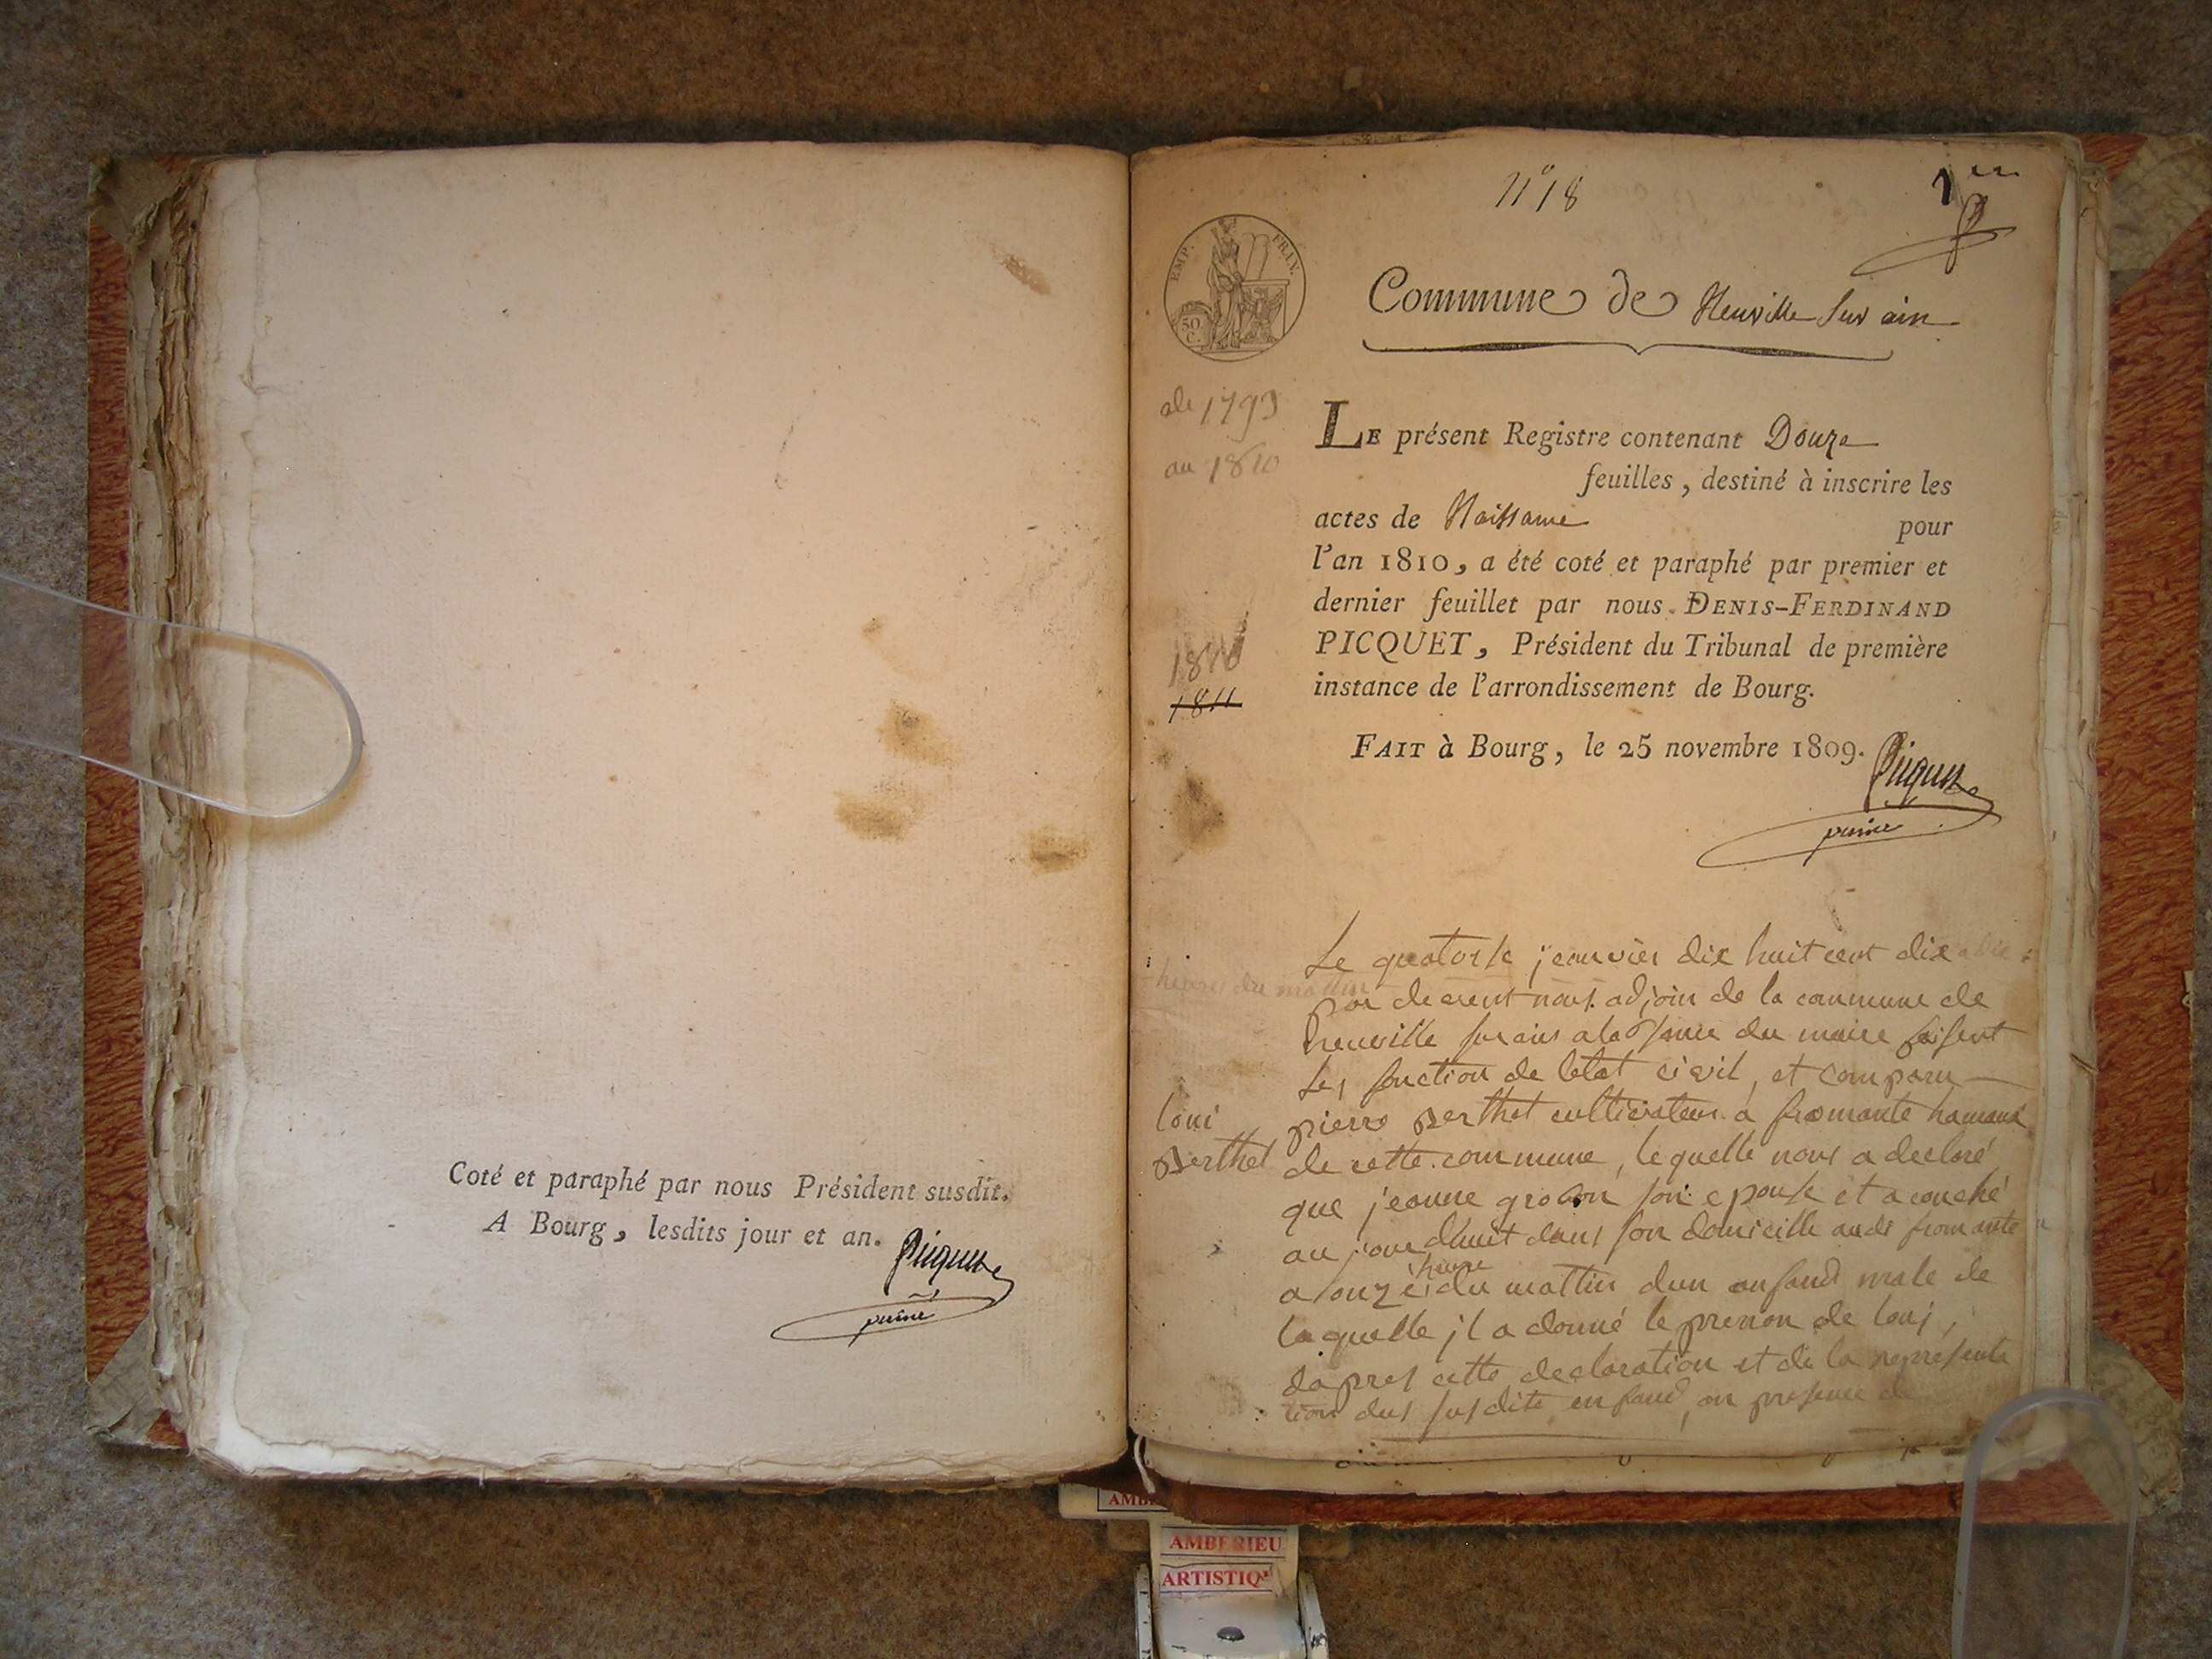 Coté et paraphé par nous Président susdit.
A Bourg, lesdits jour et an.
Picquet
puiné
N° 18
1er
EMP. FRAN.
50 C.
Commune de Neuville sur ain
de 1793
au 1810
LE présent Registre contenant Douze
feuilles, destiné à inscrire les
actes de Naissance pour
l'an 1810, a été coté et paraphé par premier et
dernier feuillet par nous DENIS-FERDINAND
PICQUET, Président du Tribunal de première
instance de l'arrondissement de Bourg.
1810
1811
FAIT à Bourg, le 25 novembre 1809.
Picquet
puiné
Le quatorse jeanvier dix huit cent dix a dix
heures du mattin
par devent nous adjoin de la commune de
neuville sur ain a la
du maire faisent
les fonction de letat civil, et comparu
loui
Berthet
pierre Berthet cultivateur a fromante hamaux
de cette commune, le quelle nous a declaré
que jeanne grobon son epouse et acouché
au jourdhuit dans son domicille audi fromante
a onze heure du mattin dun enfand male de
la quelle jl a donné le prenon de loui,
dapres cette declaration et de la represente
tion dus susdite enfand, an presence de
AMBERIEU
ARTISTIQ